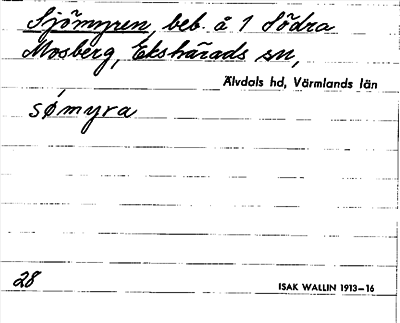 Sjömyren, beb. å 1 Södra
Mosberg, Ekshärads sn,
Älvdals hd, Värmlands län
sømyra
28
ISAK WALLIN 1913–16